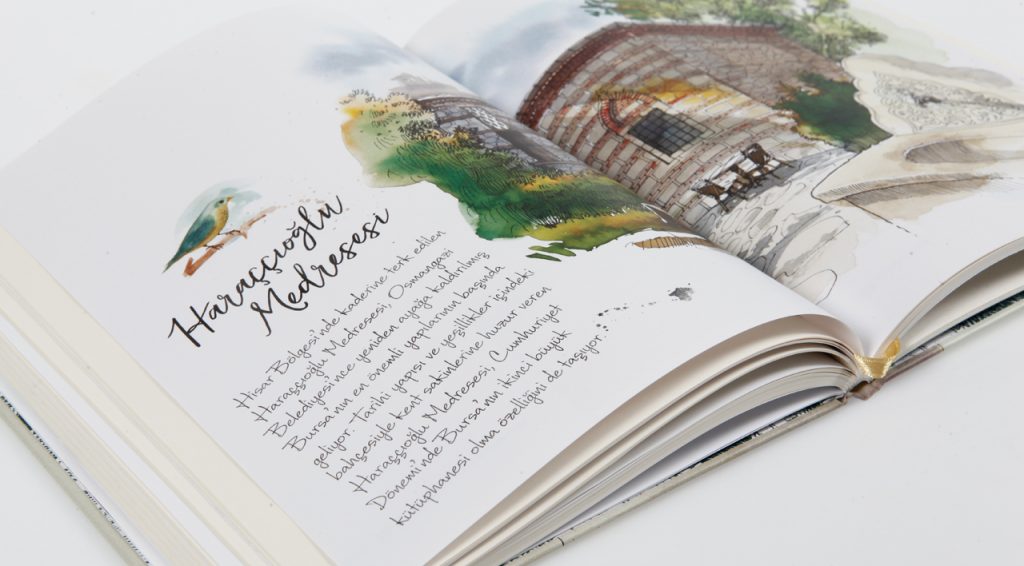 Haraççıoğlu
Medresesi
Hisar Bölgesi'nde kaderine terk edilen
Haraşşıoğlu Medresesi, Osmangazi
Belediyesi'nce yeniden ayağa kaldırılmış
Bursa'nın en önemli yapılarının başında
geliyor. Tarihi yapısı ve yeşillikler içindeki
bahçesiyle kent sakinlerine huzur veren
Haraşşıoğlu Medresesi, Cumhuriyet
Dönemi'nde Bursa'nın ikinci büyük
kütüphanesi olma özelliğini de taşıyor.